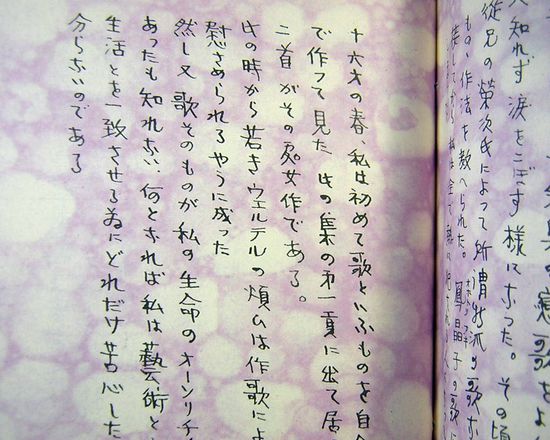 人知れず涙をこぼす様になった。その頃
従兄の榮次氏によって所謂新派の歌な
もの、作法を教へられた。鳳晶子の歌に
十六才の春、私は初めて歌といふものを自
で作つて見た 此の集の第一頁に出て居
二首がその処女作である。
此の時から若きウェルテルの煩ムは作歌によ
慰さめられるやうに成った
然し又 歌そのものが私の生命のオーソリチ
あったも知れない、何となれば私は藝術と
生活とを一致させる為にどれだけ苦心した
分らないのである